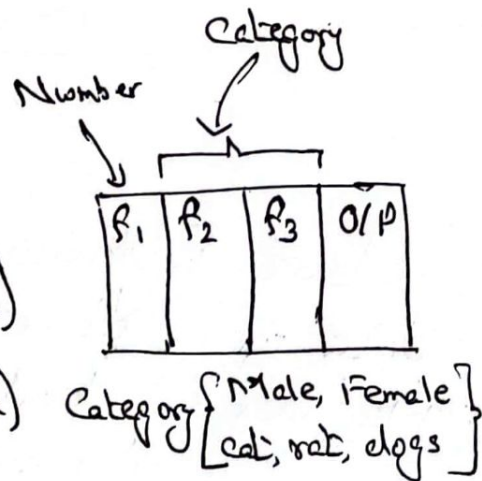 Category
Number
f1 f2 f3 O/P
)
)
Category { Male, Female }
cat, rat, dogs